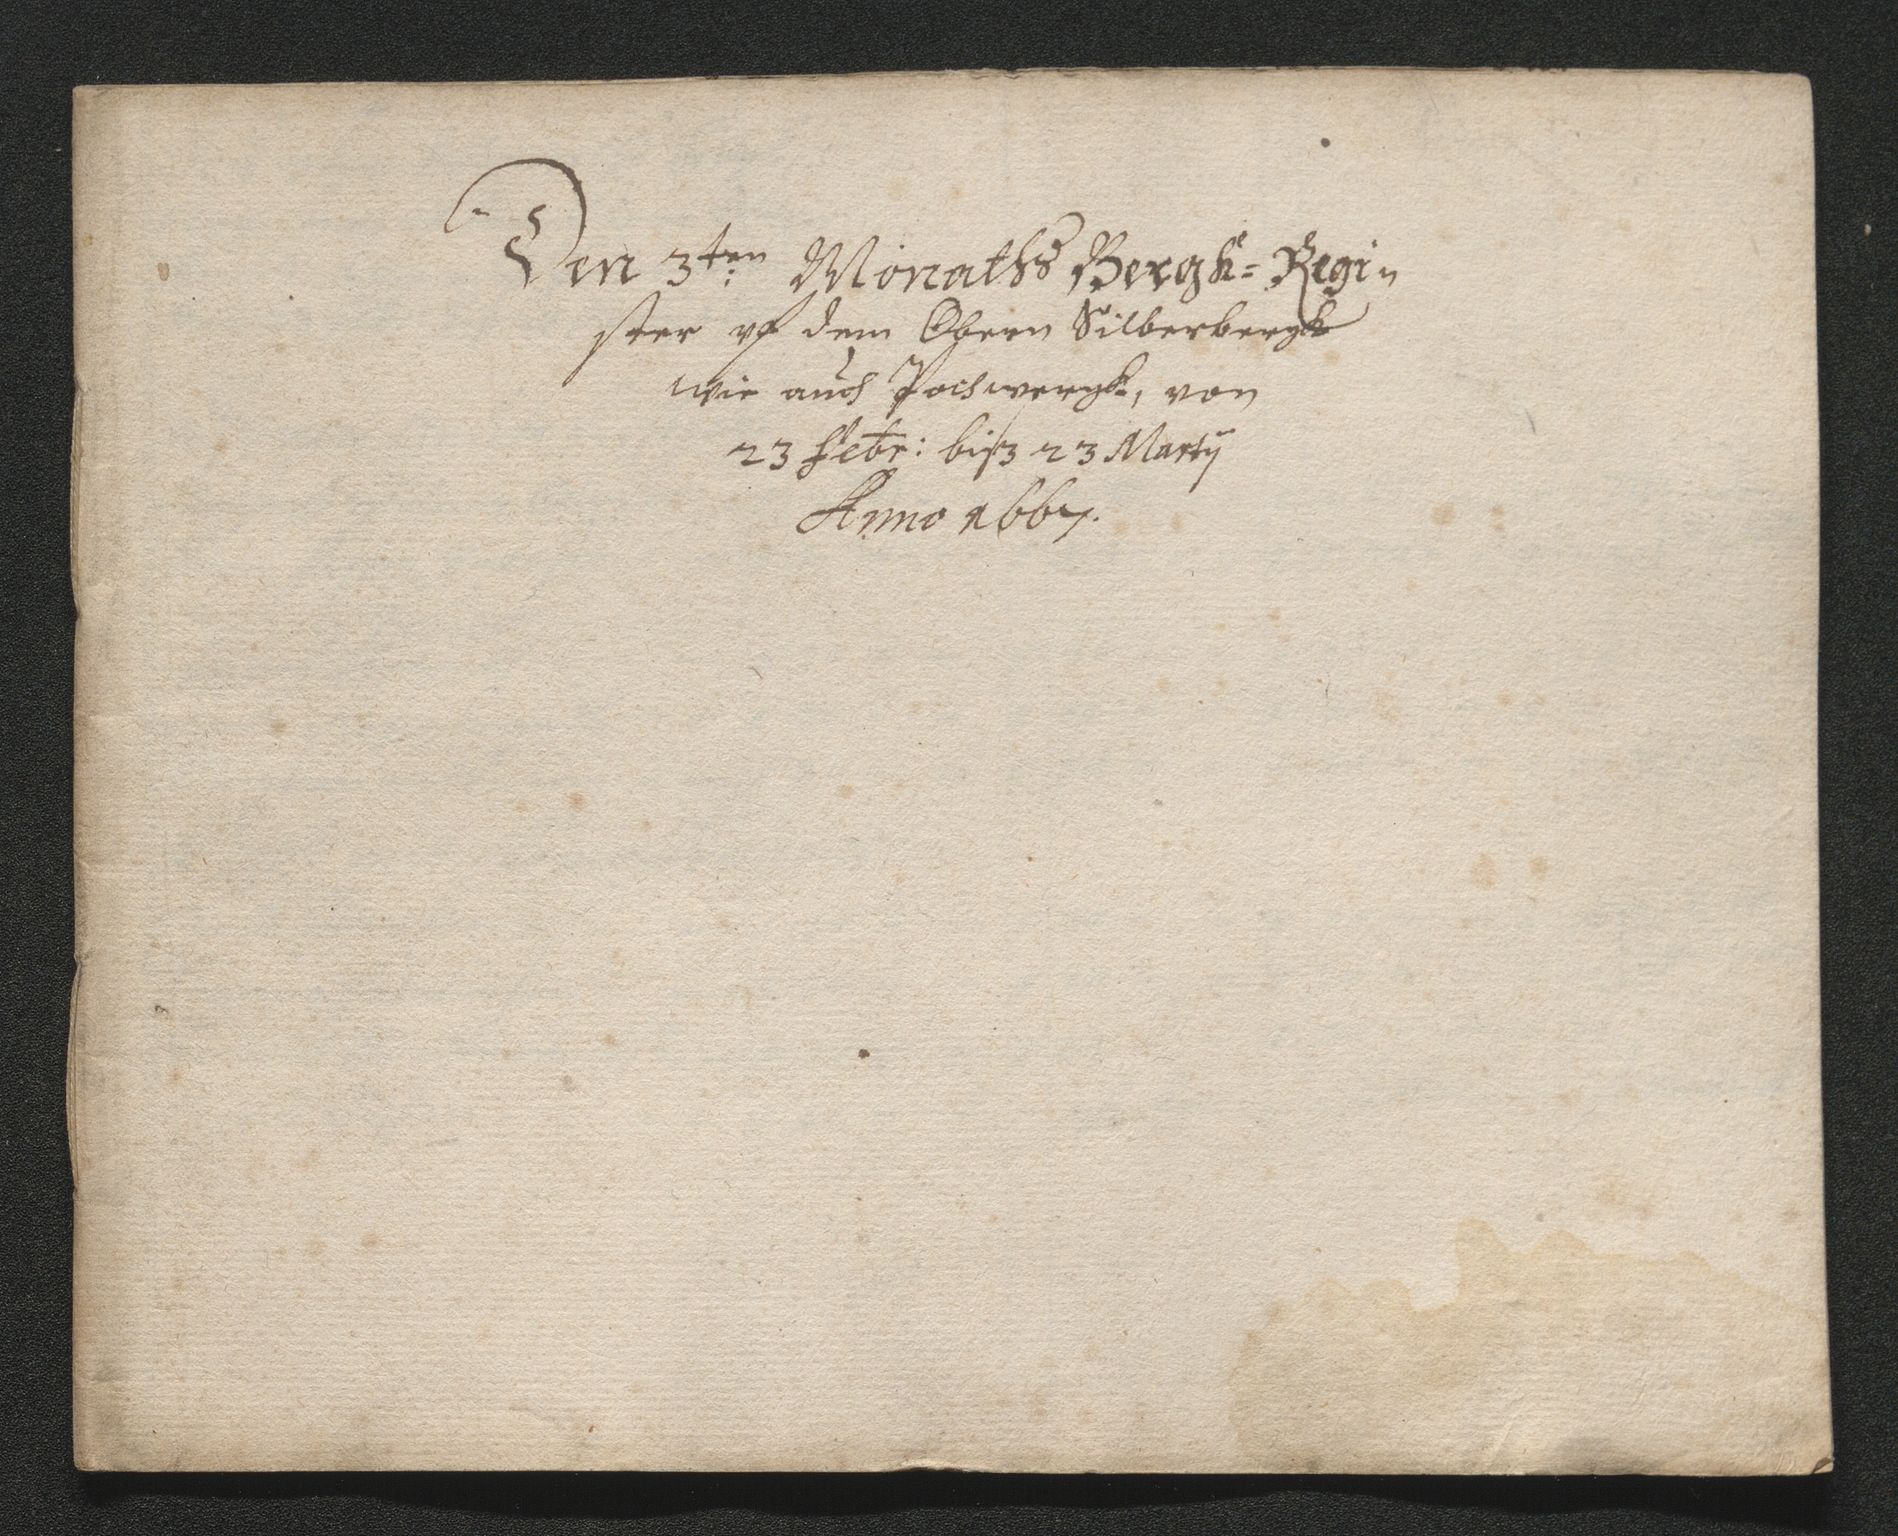 Den 3ten Monaths Bergk= Regi=
ster vf dem Obern Silberbergk
wie auch Pochwergk, von
23 Febr: biß 23 Martij
Anno 1667.